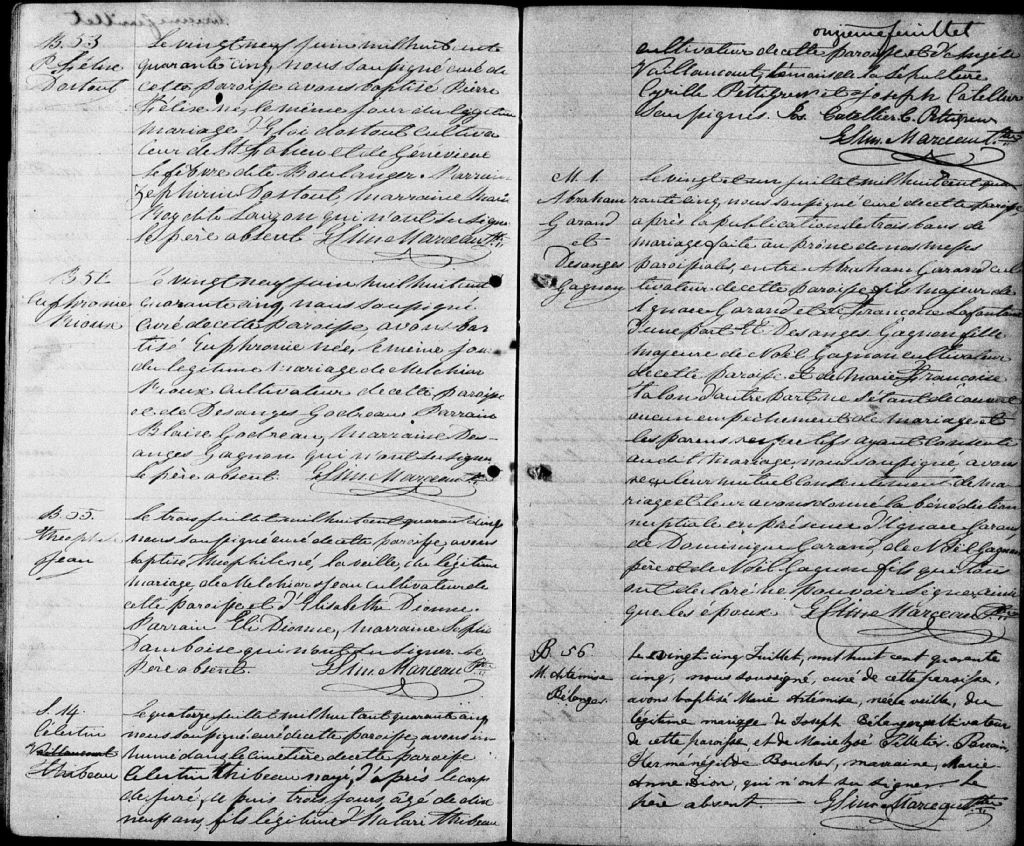 B. 53
P. Félix
Dostout
Le vingt neuf juin mil huit cent
quarante cinq, nous soussigné curé de
cette paroisse avons baptisé Pierre
Félix né, le même jour du légitime
mariage d'Eloi Dostout cultiva
teur de St Fabien et de Géneviève
Lefebvre dite Boulanger. Parrain
Zephirin Dostout, marraine Marie
Roy dite Lauzon qui n'ont su signer
le père absent. Gslim Marceau Ptre
B 54
Euphromie
Rioux
Le vingt neuf juin mil huit cent
quarante cinq, nous soussigné
curé de cette paroisse, avons bap
tisé Euphromie née, le même jour
du légitime mariage de Melchior
Rioux cultivateur de cette paroisse
et de Desanges Godreau Parrain
Blaise Godreau, marraine Des-
anges Gagnon qui n'ont su signer
le père absent. Gslim Marceau Ptre
B 55.
Théophile
Jean
Le trois juillet mil huit cent quarante cinq
nous soussigné curé de cette paroisse, avons
baptisé Théophile né, la veille, du légitime
mariage, de Melchior Jean cultivateur de
cette paroisse et d'Elisabeth Dionne.
Parrain Eli Dionne, marraine Sophie
Damboise qui n'ont su signer le
père absent. Gslim Marceau Ptre
S. 14.
Célestin
Vaillancourt
Thibeau
Le quatorze juillet mil huit cent quarante cinq
nous soussigné curé de cette paroisse avons in
humé dans le cimetière de cette paroisse
Celestin Thibeau noyé, d'après le corps
de juré, depuis trois jours, âgé de dix
neuf ans, fils légitime d'Halari Thibeau
onzième feuillet
cultivateur de cette paroisse et d'Angèle
Vaillancourt, témoins de la sépulture
Cyrille Pettigrew et Joseph Catellier
soussignés. Jos. Catellier C. Pettigrew
Gslim Marceau Ptre
M. 1.
Abraham
Garand
et
Desanges
Gagnon
Le vingt et un juillet mil huit cent qua
rante cinq, nous soussigné curé de cette paroisse
après la publication de trois bans de
mariage faite au prône de nos messes
paroissiales, entre Abraham Garand cul
tivateur de cette paroisse fils majeur de
Ignace Garand et de Françoise Lafontaine
d'une part, Et Desanges Gagnon fille
majeure de Noël Gagnon cultivateur
de cette paroisse et de Marie Françoise
Talon d'autre part ne s'étant découvert
aucun empêchement de mariage et
les parens respectifs ayant consenti
au dit mariage, nous soussigné avons
reçu leur mutuel consentement de ma
riage et leur avons donné la bénédiction
nuptiale en présence d'Ignace Garand
de Dominique Garand, de Noël Gagnon
père et de Noël Gagnon fils que tous
ont déclaré ne pouvoir signer ainsi
que les époux. Gslim Marceau Ptre
B 56
M. Artémise
Bélanger
Le vingt cinq Juillet, mil huit cent quarante
cinq, nous soussigné, curé de cette paroisse,
avons baptisé Marie Artémise, née la veille, du
légitime mariage de Joseph Bélanger cultivateur
de cette paroisse, et de Marie Zoé Pelletier. Parrain,
Hermenegilde Boucher, marraine, Marie
Anne Dion, qui n'ont su signer. Le
père absent. Gslim Marceau Ptre